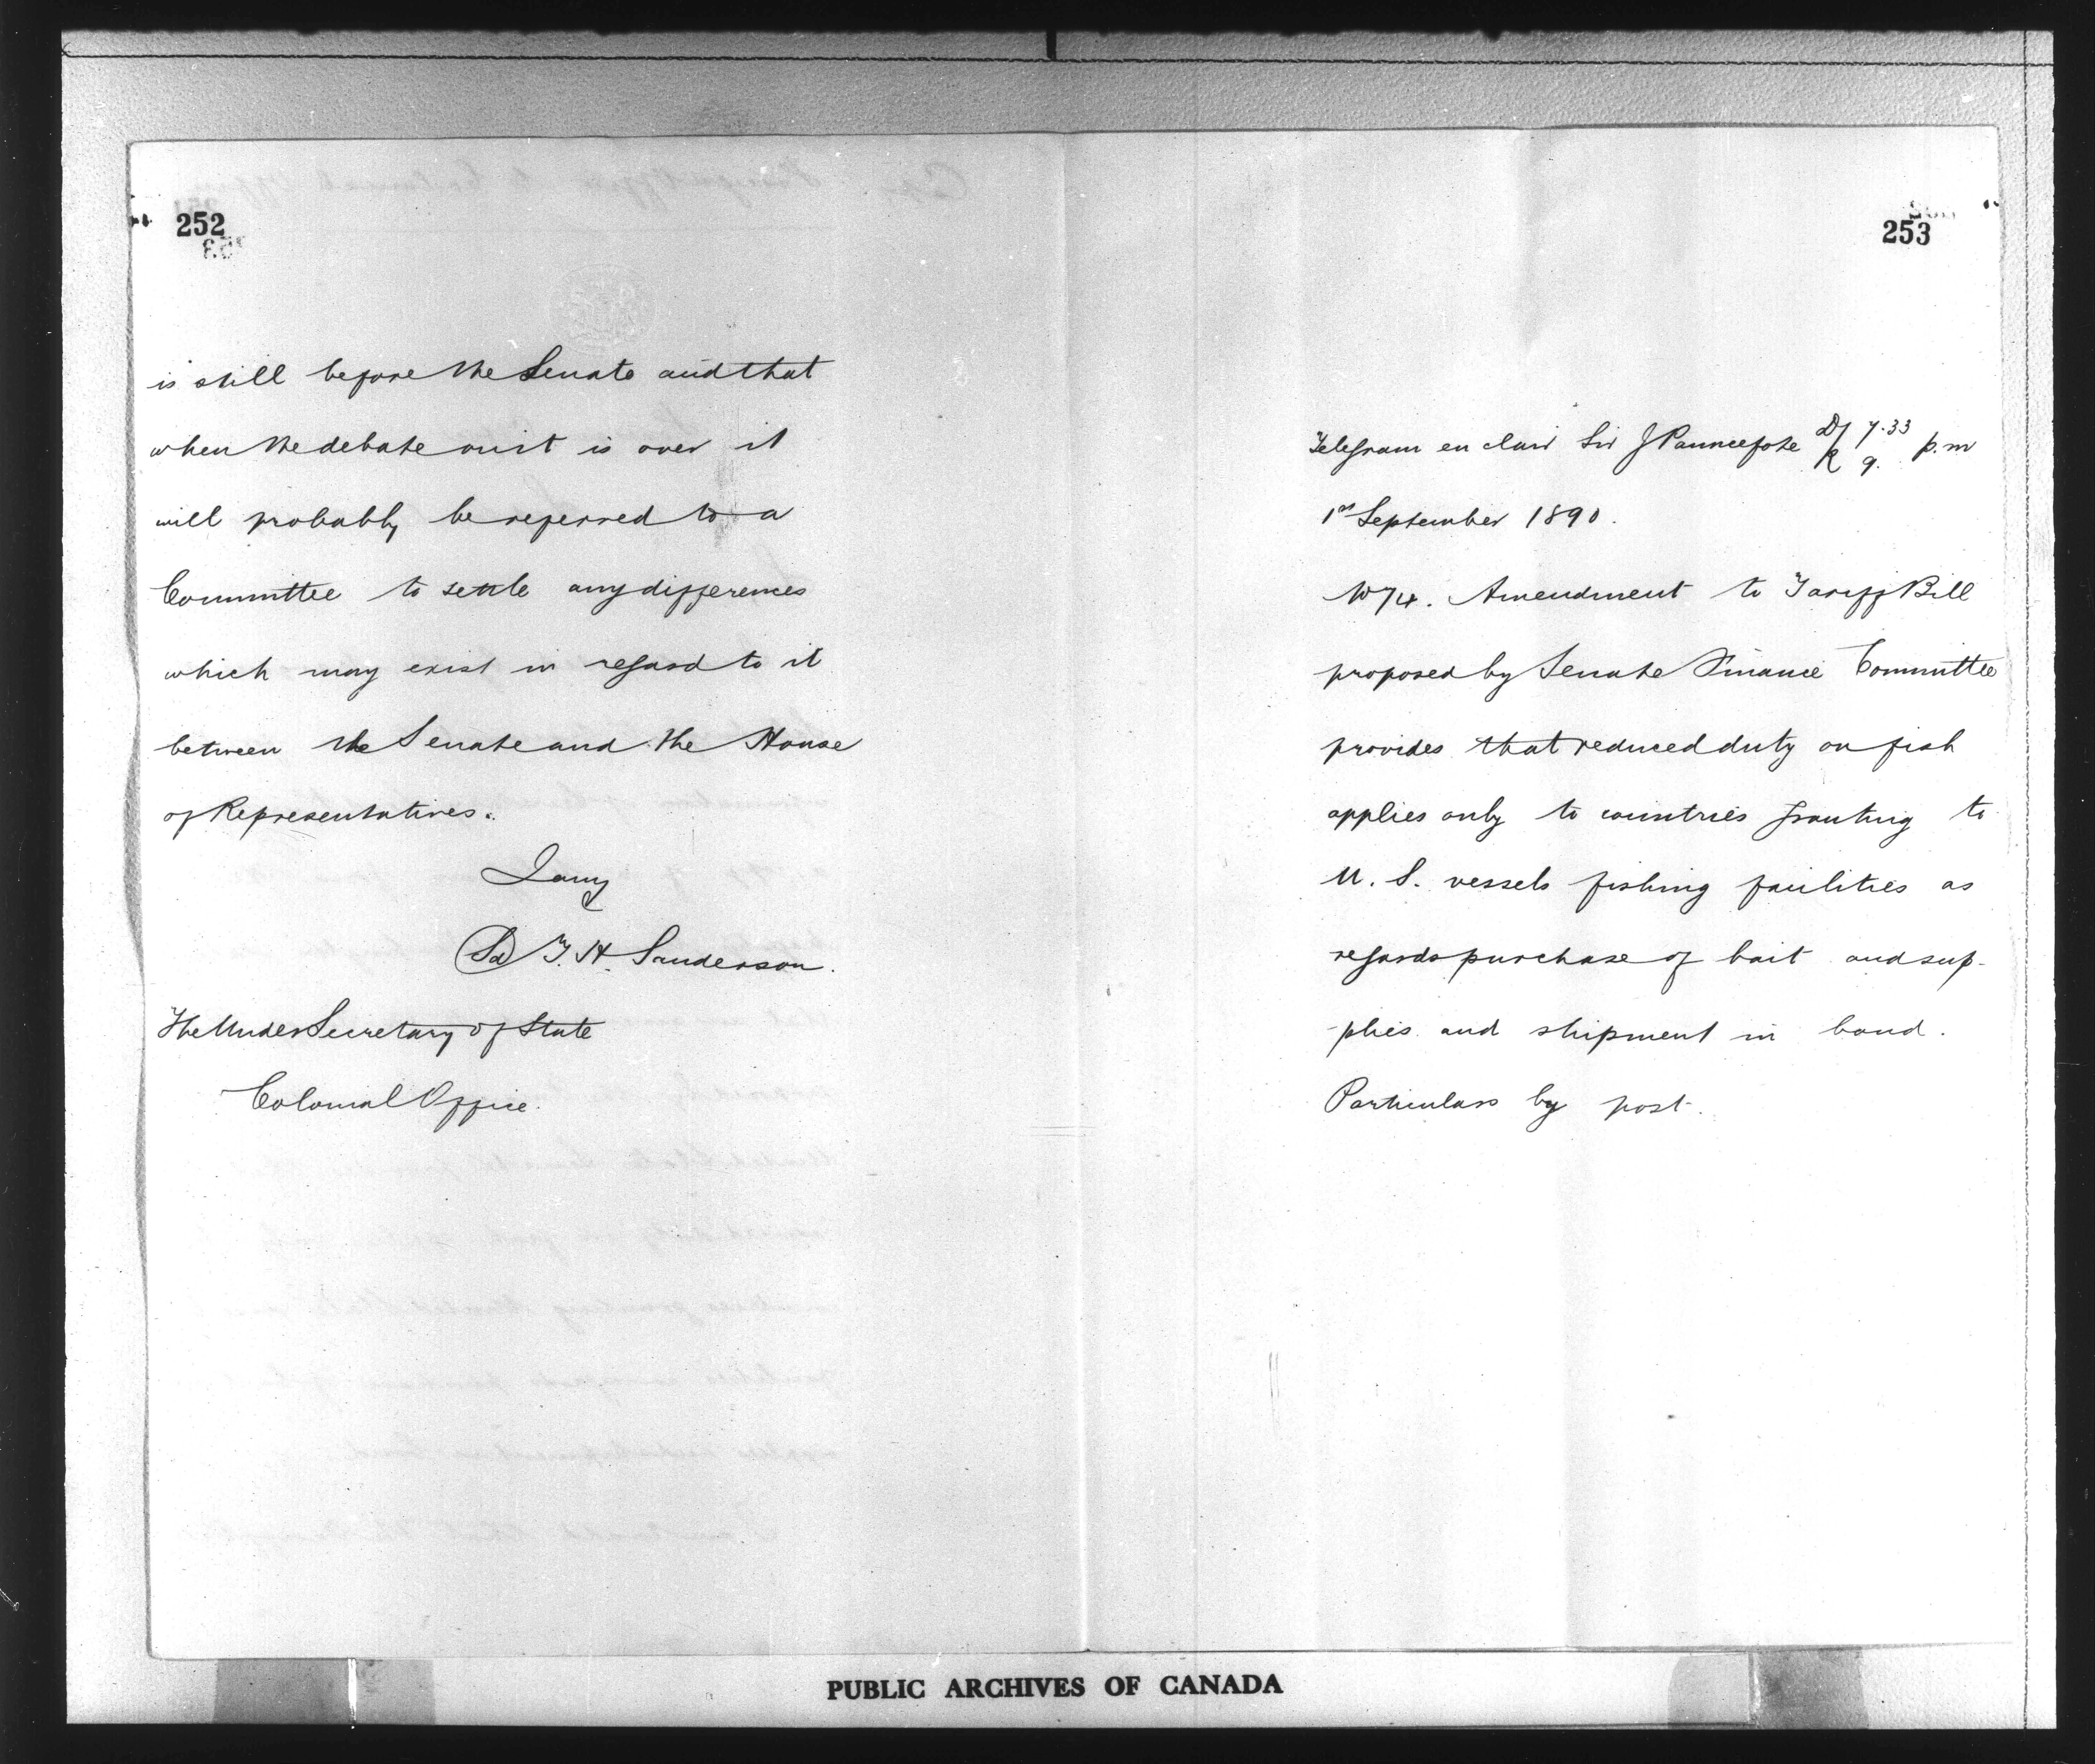 252
is still before the Senate and that
when the debate on it is over it
will probably be referred to a
Committee to settle any differences
which may exist in regard to it
between the Senate and the House
of Representatives.
I am
(Sd) T. H. Sanderson.
The Under Secretary of State
Colonial Office.
253
Telegram en clair Sir J Pauncefote D/ 7.33 p.m
R 9.
1st September 1890.
Amendment to Tariff Bill
proposed by Senate Finance Committee
provides that reduced duty on fish
applies only to countries granting to
U. S. vessels fishing facilities as
regards purchase of bait and sup-
-plies and shipment in bond.
Particulars by post.
PUBLIC ARCHIVES OF CANADA